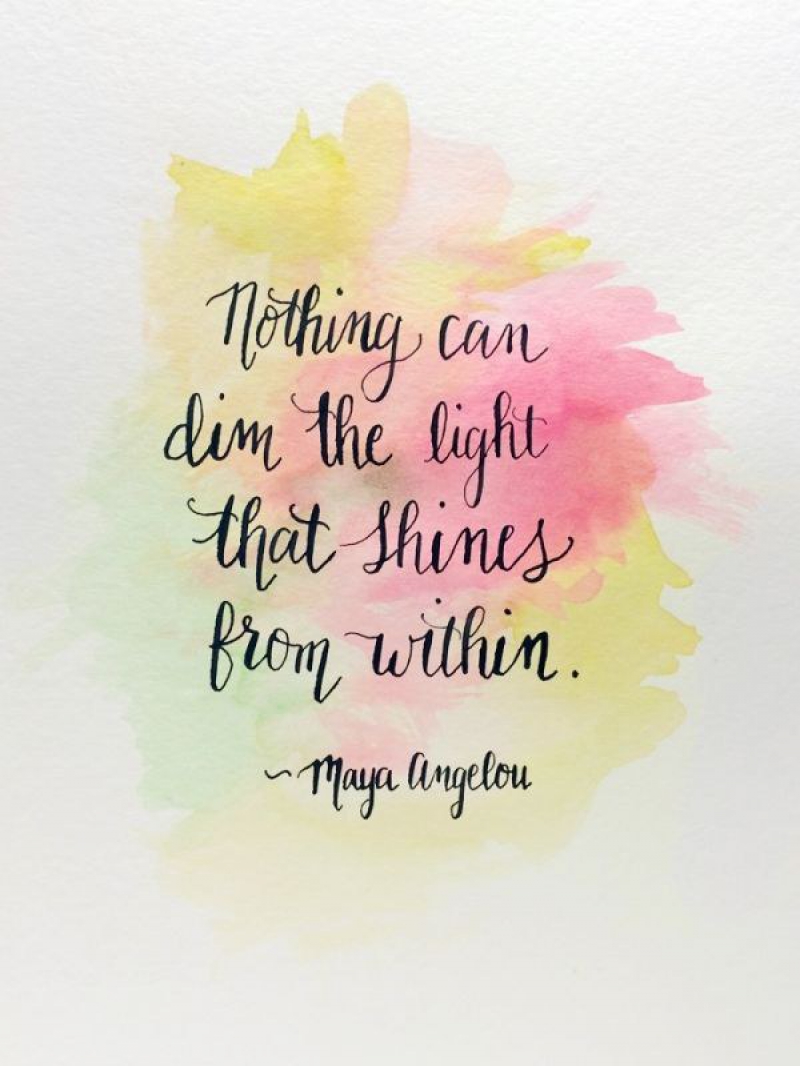 Nothing can
dim the light
that shines
from within.
~ Maya Angelou